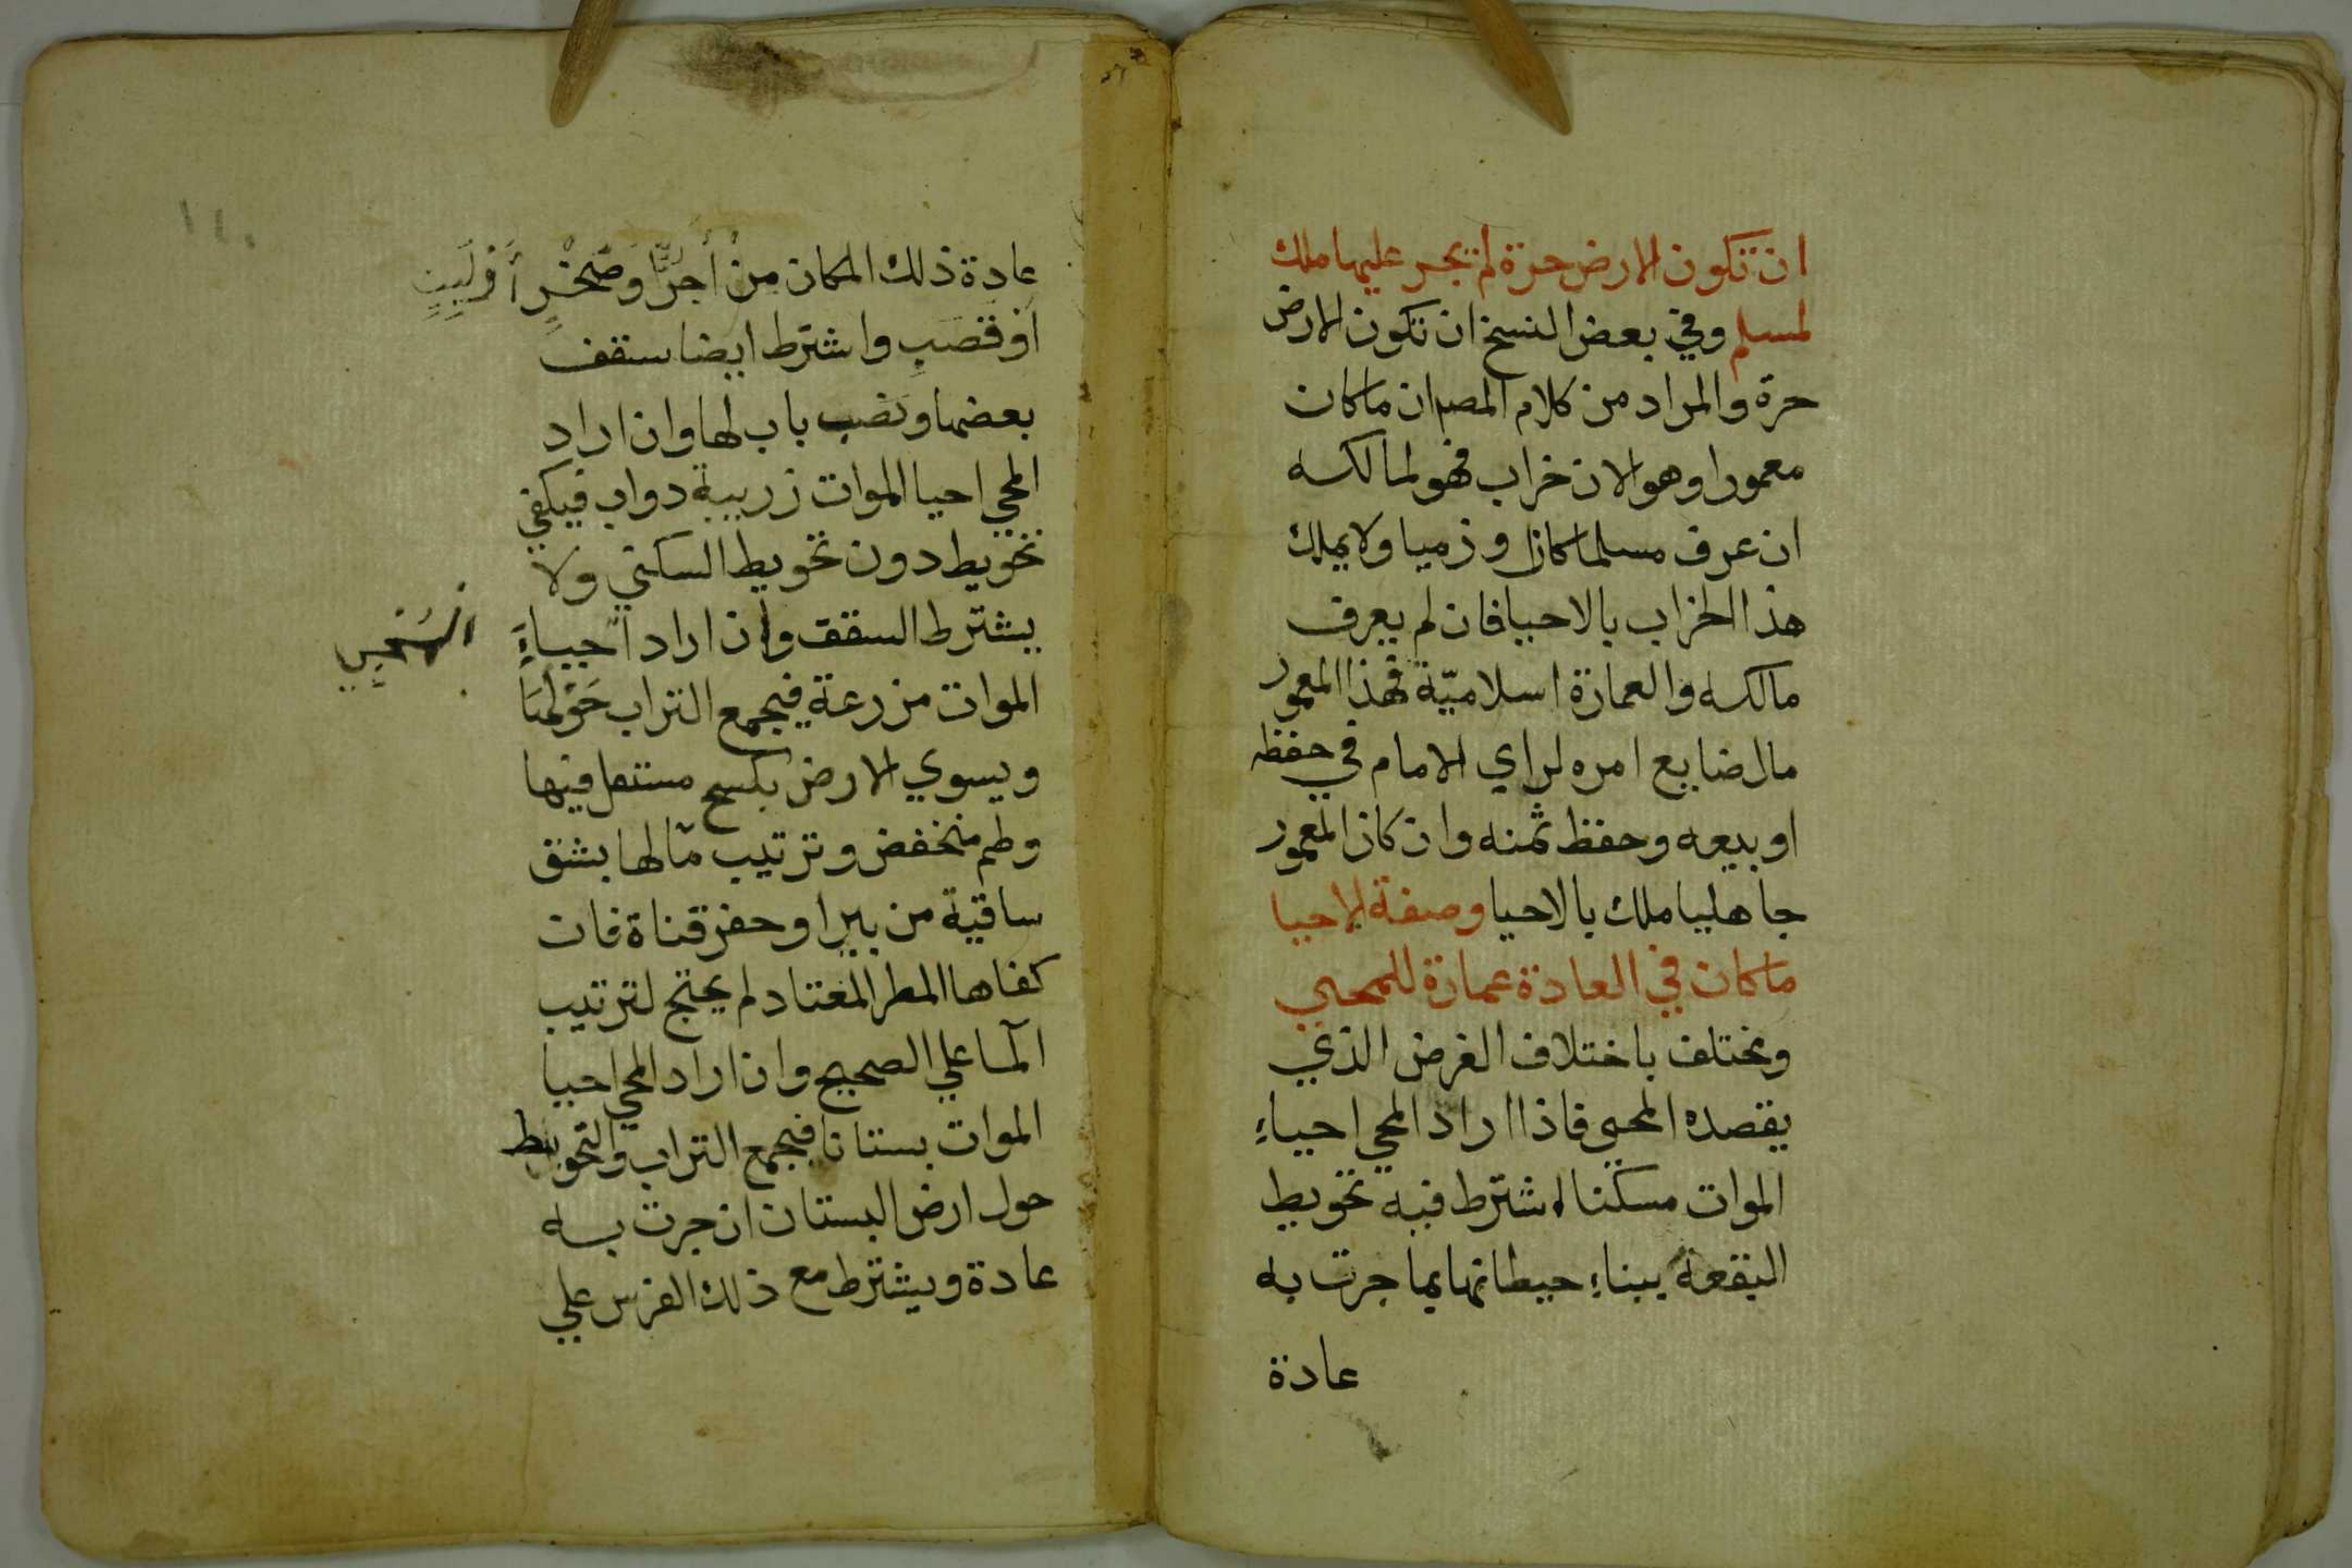 ان تكون الارض حرة لم يجر عليها ملك
لمسلم وفي بعض النسخ ان تكون الارض
حرة والمراد من كلام المصم ان ما كان
معمورا وهو الان خراب فهو لمالكه
ان عرف مسلما كان او ذميا ولا يملك
هذا الخراب بالاحيا فان لم يعرف
مالكه والعمارة اسلاميّة فهذا المعمور
مال ضايع امره لراي الامام في حفظه
او بيعه وحفظ ثمنه وان كان المعمور
جاهليا ملك بالاحيا وصفة الاحيا
ما كان في العادة عمارة للمحيي
ويختلف باختلاف الغرض الذي
يقصده المحيي فاذا اراد المحيي احياءِ
الموات مسكنا اشترط فيه تحويط
البقعة ببناءِ حيطانها بما جرت به
عادة
عادة ذلك المكان من أجرّ أَوصَخْرٍ أَوْلَبِنٍ
أوقصبٍ واشترط ايضا سقف
بعضها ونصب باب لها وان اراد
المحيي احيا الموات زريبة دواب فيكفي
تحويط دون تحويط السكني ولا
يشترط السقف وان اراد احياءَ
الموات مزرعة فيجمع التراب حَوْلَهَا
ويسوي الارض بكسح مستعل فيها
وطم منخفض وترتيب مآ لها بشق
ساقية من بير او حفر قناة فان
كفاها المطر المعتاد لم يحتج لترتيب
المآ علي الصحيح وان اراد المحيي احيا
الموات بستانا فيجمع التراب والتحويط
حول ارض البستان ان جرت به
عادة ويشترط مع ذلك الغرس علي